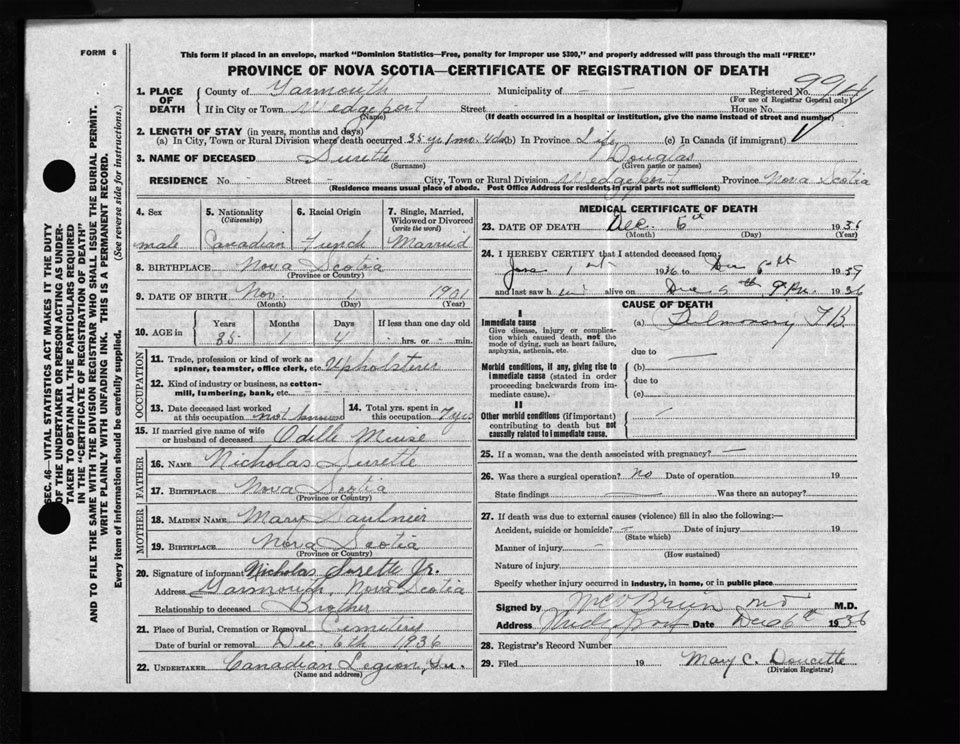 FORM 6
This form if placed in an envelope, marked "Dominion Statistics—Free, penalty for improper use $300," and properly addressed will pass through the mail "FREE"
PROVINCE OF NOVA SCOTIA—CERTIFICATE OF REGISTRATION OF DEATH
SEC. 46—VITAL STATISTICS ACT MAKES IT THE DUTY
OF THE UNDERTAKER OR PERSON ACTING AS UNDER-
TAKER TO OBTAIN ALL THE PARTICULARS REQUIRED
IN THE "CERTIFICATE OF REGISTRATION OF DEATH"
AND TO FILE THE SAME WITH THE DIVISION REGISTRAR WHO SHALL ISSUE THE BURIAL PERMIT.
WRITE PLAINLY WITH UNFADING INK. THIS IS A PERMANENT RECORD.
Every item of information should be carefully supplied. (See reverse side for instructions.)
1. PLACE OF DEATH County of Yarmouth Municipality of - - Registered No.
(For use of Registrar General only)
If in City or Town Wedgeport Street - House No.
(Name) (If death occurred in a hospital or institution, give the name instead of street and number)
2. LENGTH OF STAY (in years, months and days)
(a) In City, Town or Rural Division where death occurred 35 yr 1 mo. 4 da (b) In Province Life (c) In Canada (if immigrant)
3. NAME OF DECEASED Surette Douglas
(Surname) (Given name or names)
RESIDENCE No. Street - City, Town or Rural Division Wedgeport Province Nova Scotia
(Residence means usual place of abode. Post Office Address for residents in rural parts not sufficient)
4. Sex 5. Nationality (Citizenship) 6. Racial Origin 7. Single, Married, Widowed or Divorced (write the word)
male Canadian French Married
8. BIRTHPLACE Nova Scotia
(Province or Country)
9. DATE OF BIRTH Nov. 1 1901
(Month) (Day) (Year)
10. AGE in Years Months Days If less than one day old
35 1 4 - hrs. or - min.
OCCUPATION
11. Trade, profession or kind of work as spinner, teamster, office clerk, etc. Upholsterer
12. Kind of industry or business, as cotton-mill, lumbering, bank, etc.
13. Date deceased last worked at this occupation not known 14. Total yrs. spent in this occupation 7 yrs
15. If married give name of wife or husband of deceased Odille Muise
FATHER
16. NAME Nicholas Surette
17. BIRTHPLACE Nova Scotia
(Province or Country)
MOTHER
18. MAIDEN NAME Mary Saulnier
19. BIRTHPLACE Nova Scotia
(Province or Country)
20. Signature of informant Nicholas Surette Jr.
Address Yarmouth, Nova Scotia
Relationship to deceased Brother
21. Place of Burial, Cremation or Removal Cemetery
Date of burial or removal Dec. 6th 1936
22. UNDERTAKER Canadian Legion,
(Name and address)
MEDICAL CERTIFICATE OF DEATH
23. DATE OF DEATH Dec. 1936
(Month) (Day) (Year)
24. I HEREBY CERTIFY that I attended deceased from:
1st 1936 to Dec 19
and last saw him alive on Dec 5th, 9 P.m. 1936
CAUSE OF DEATH
I
Immediate cause
Give disease, injury or complication which caused death, not the mode of dying, such as heart failure, asphyxia, asthenia, etc.
(a) Pulmonary T.B.
due to —
Morbid conditions, if any, giving rise to immediate cause (stated in order proceeding backwards from immediate cause).
(b)
due to
(c)
II
Other morbid conditions (if important) contributing to death but not causally related to immediate cause.
25. If a woman, was the death associated with pregnancy? —
26. Was there a surgical operation? no Date of operation 19
State findings Was there an autopsy?
27. If death was due to external causes (violence) fill in also the following:—
Accident, suicide or homicide? - Date of injury 19
(State which)
Manner of injury -
(How sustained)
Nature of injury
Specify whether injury occurred in industry, in home, or in public place
Signed by McO'Brien MD M.D.
Address Date Dec 6th 1936
28. Registrar's Record Number
29. Filed 19 Mary C. Doucette
(Division Registrar)